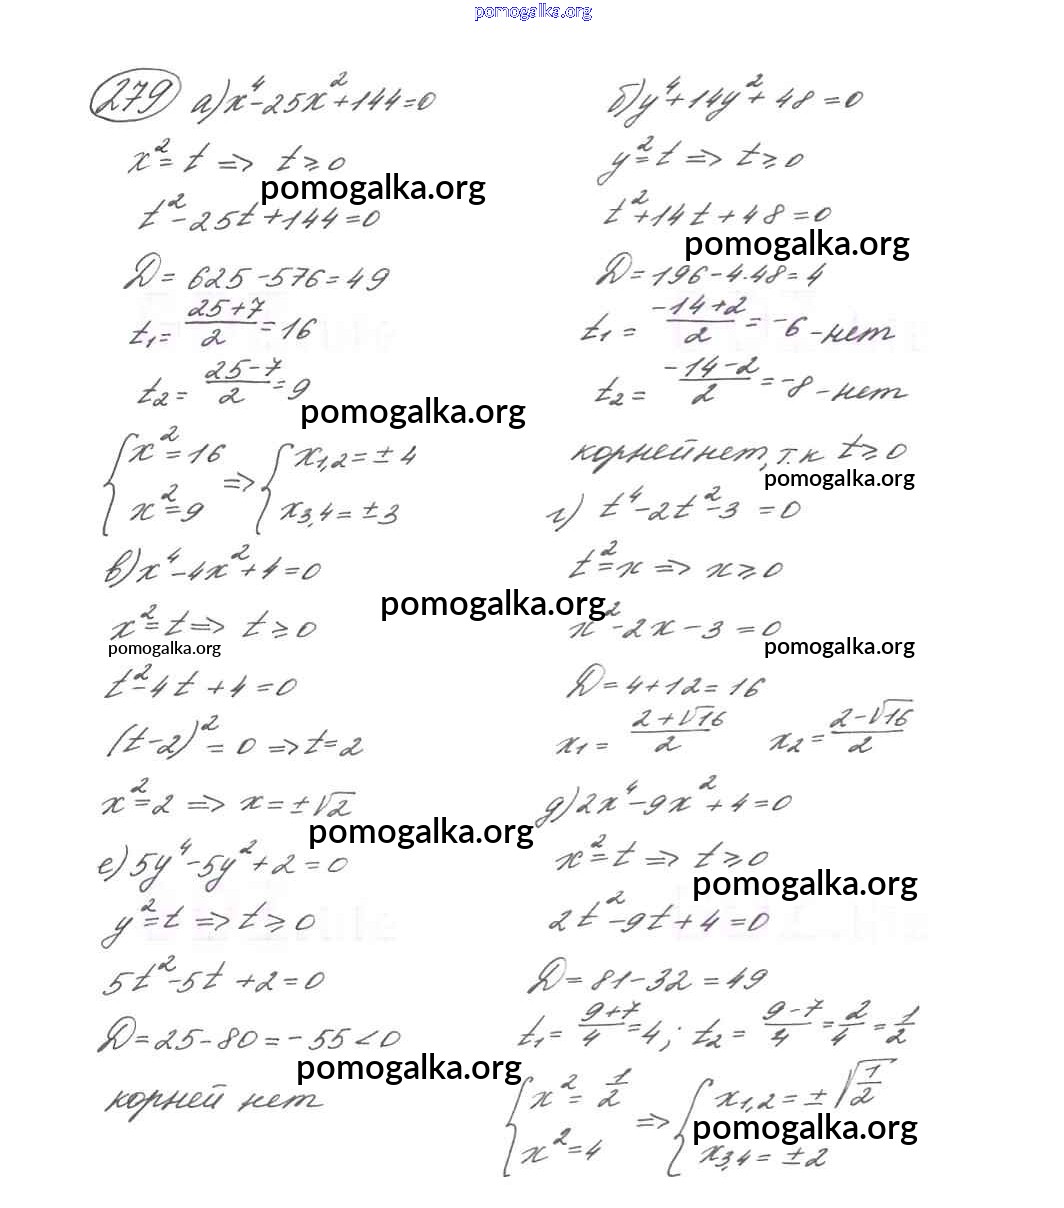 pomogalka.org
279 а) x⁴-25x²+144=0
x²=t => t≥0
pomogalka.org
t²-25t+144=0
D=625-576=49
t₁=(25+7)/2=16
t₂=(25-7)/2=9
pomogalka.org
{x²=16 => {x₁,₂=±4
{x²=9 {x₃,₄=±3
в) x⁴-4x²+4=0
pomogalka.org
x²=t=> t≥0
pomogalka.org
t²-4t+4=0
(t-2)²=0 =>t=2
x²=2 => x=±√2
pomogalka.org
е) 5y⁴-5y²+2=0
y²=t => t≥0
5t²-5t+2=0
D=25-80=-55<0
pomogalka.org
корней нет
б) y⁴+14y²+48=0
y²=t => t≥0
t²+14t+48=0
pomogalka.org
D=196-4·48=4
t₁=(-14+2)/2=-6-нет
t₂=(-14-2)/2=-8-нет
корней нет, т.к t≥0
pomogalka.org
г) t⁴-2t²-3=0
t²=x => x≥0
x²-2x-3=0
pomogalka.org
D=4+12=16
x₁=(2+√16)/2 x₂=(2-√16)/2
д) 2x⁴-9x²+4=0
x²=t => t≥0
pomogalka.org
2t²-9t+4=0
D=81-32=49
t₁=(9+7)/4=4; t₂=(9-7)/4=2/4=1/2
{x²=1/2 => {x₁,₂=±√(1/2)
pomogalka.org
{x²=4 {x₃,₄=±2